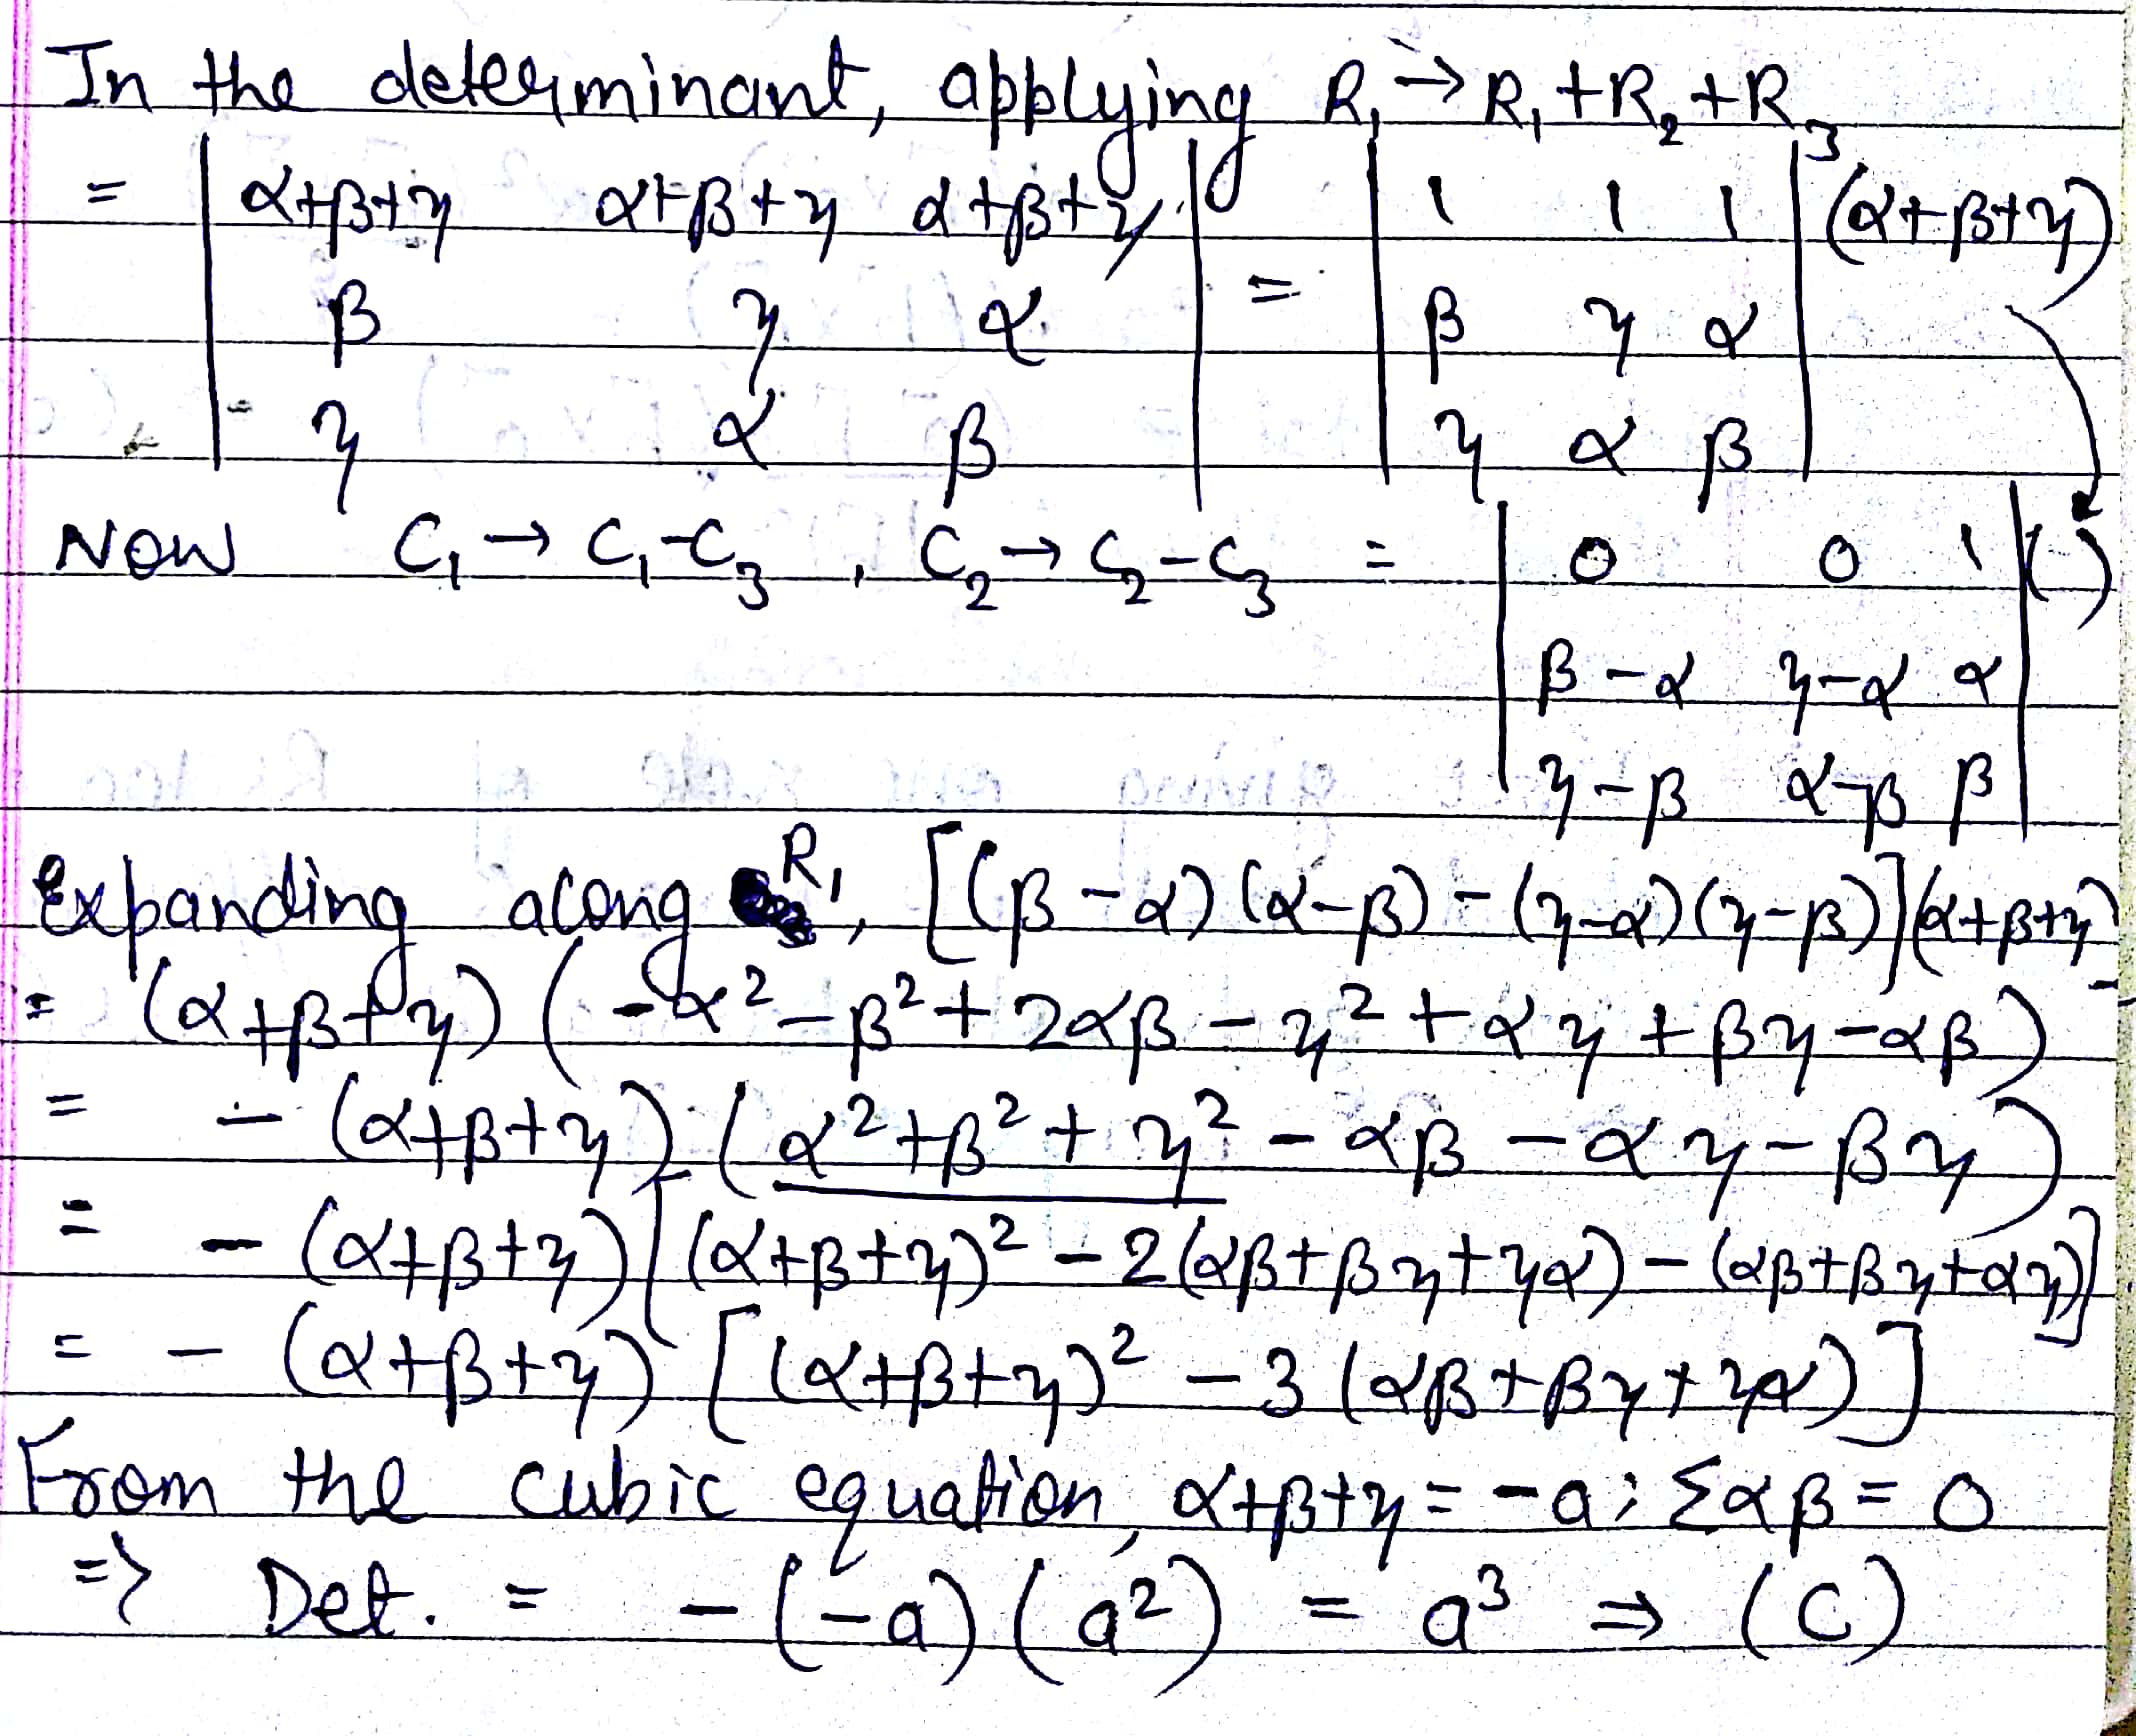 In the determinant, applying R₁ → R₁ + R₂ + R₃
= | α+β+γ α+β+γ α+β+γ | = | 1 1 1 | (α+β+γ)
| β γ α | | β γ α |
| γ α β | | γ α β |
Now C₁ → C₁-C₃ , C₂ → C₂-C₃ = | 0 0 1 | ( )
| β-α γ-α α |
| γ-β α-β β |
Expanding along R₁, [(β-α)(α-β) - (γ-α)(γ-β)](α+β+γ)
= (α+β+γ) (-α² - β² + 2αβ - γ² + αγ + βγ - αβ)
= - (α+β+γ) (α² + β² + γ² - αβ - αγ - βγ)
= - (α+β+γ) [(α+β+γ)² - 2(αβ+βγ+γα) - (αβ+βγ+αγ)]
= - (α+β+γ) [(α+β+γ)² - 3(αβ+βγ+γα)]
From the cubic equation, α+β+γ = -a ; Σαβ = 0
=> Det. = -(-a)(a²) = a³ ⇒ (C)